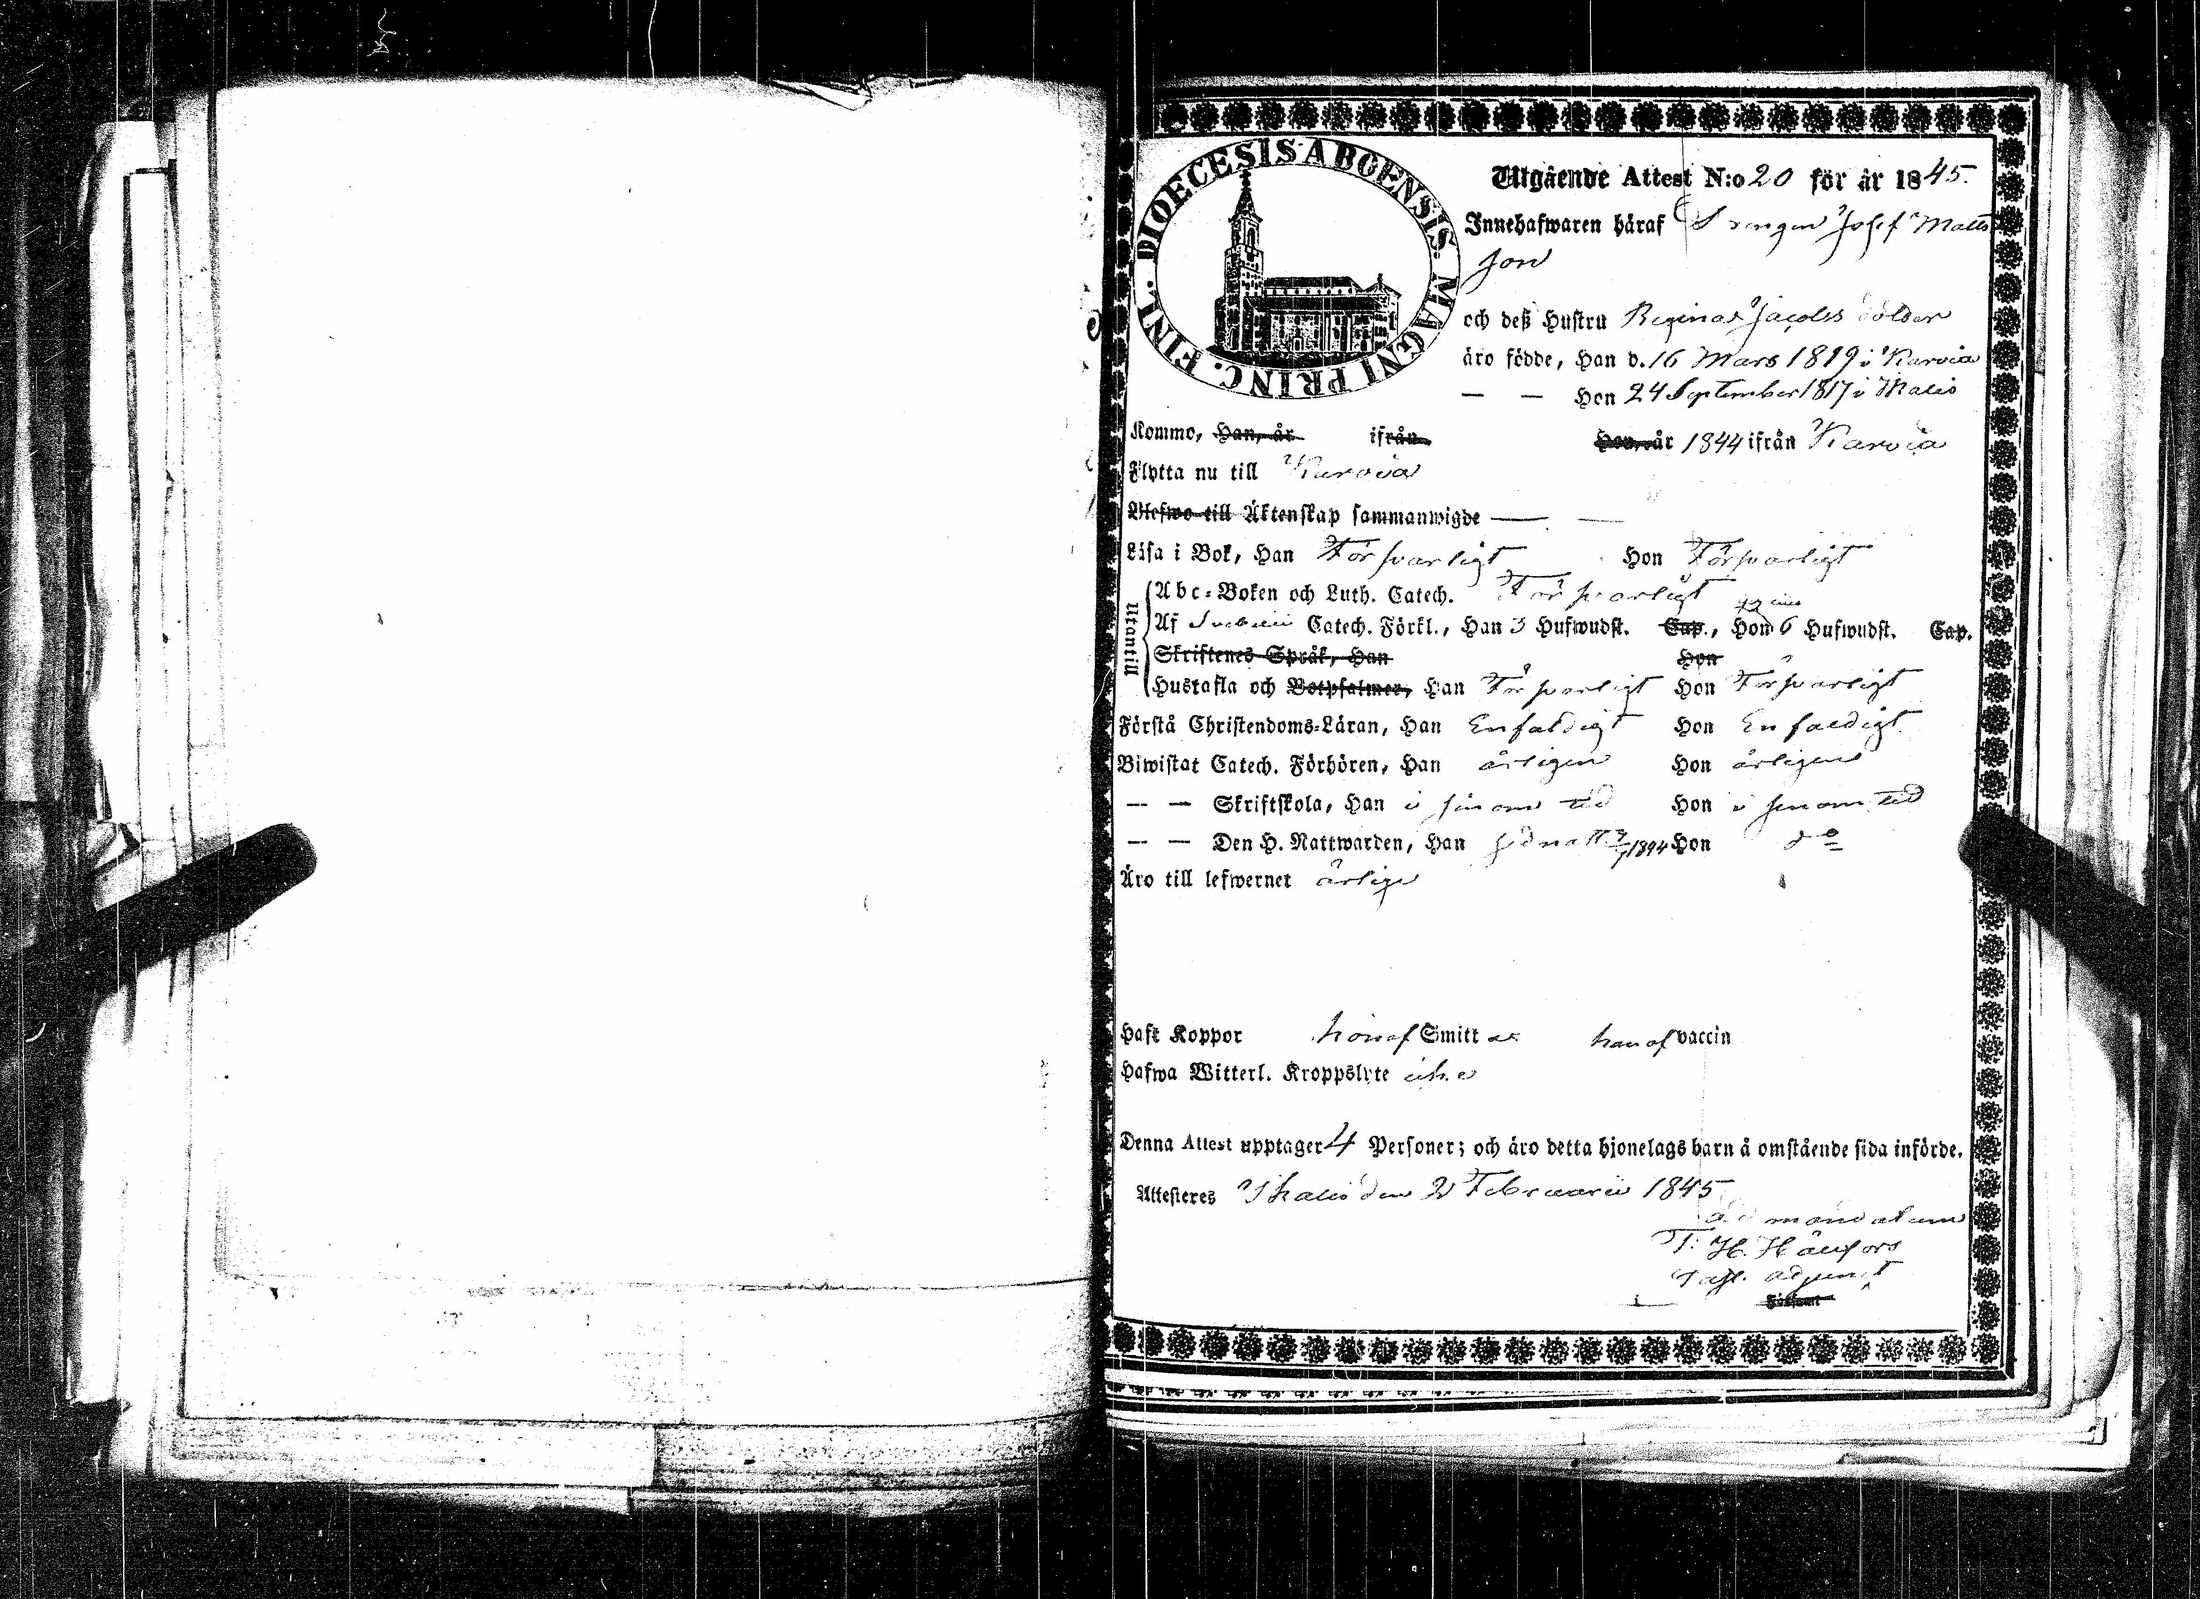 DIOECESIS ABOENSIS. MAGNI PRINC. FINL.
Utgående Attest N:o 20 för år 1845.
Innehafwaren häraf Drengen Josef Matts
son
och deß Hustru Regina Jacobs dotter
äro födde, Han d. 16 Mars 1819 i Karvia
— — Hon 24 September 1817 i Ikalis
Kommo, Han, år ifrån Hon, år 1844 ifrån Karvia
Flytta nu till Karvia
Blefwo till Äktenskap sammanwigde — —
Läsa i Bok, Han Försvarligt Hon Försvarligt
Utantill
Abc-Boken och Luth. Catech. Försvarligt
Af Svebilii Catech. Förkl., Han 3 Hufwudst. Cap., Hon 6 Hufwudst. Cap.
Skriftenes Språk, Han Hon
Hustafla och Botpsalmer, Han Försvarligt Hon Försvarligt
Förstå Christendoms-Läran, Han Enfaldigt Hon Enfaldigt
Biwistat Catech. Förhören, Han årligen Hon årligen
— — Skriftskola, Han i sinom tid Hon i sinom tid
— — Den H. Nattwarden, Han 1844 Hon do
Äro till lefwernet ärlige
Haft Koppor hon af Smitta han af vaccin
Hafwa Witterl. Kroppslyte icke
Denna Attest upptager 4 Personer; och äro detta hjonelags barn å omstående sida införde.
Attesteres Ikalis den 2 Februarii 1845
ad mandatum
H. Hänfors
Past. adjunct